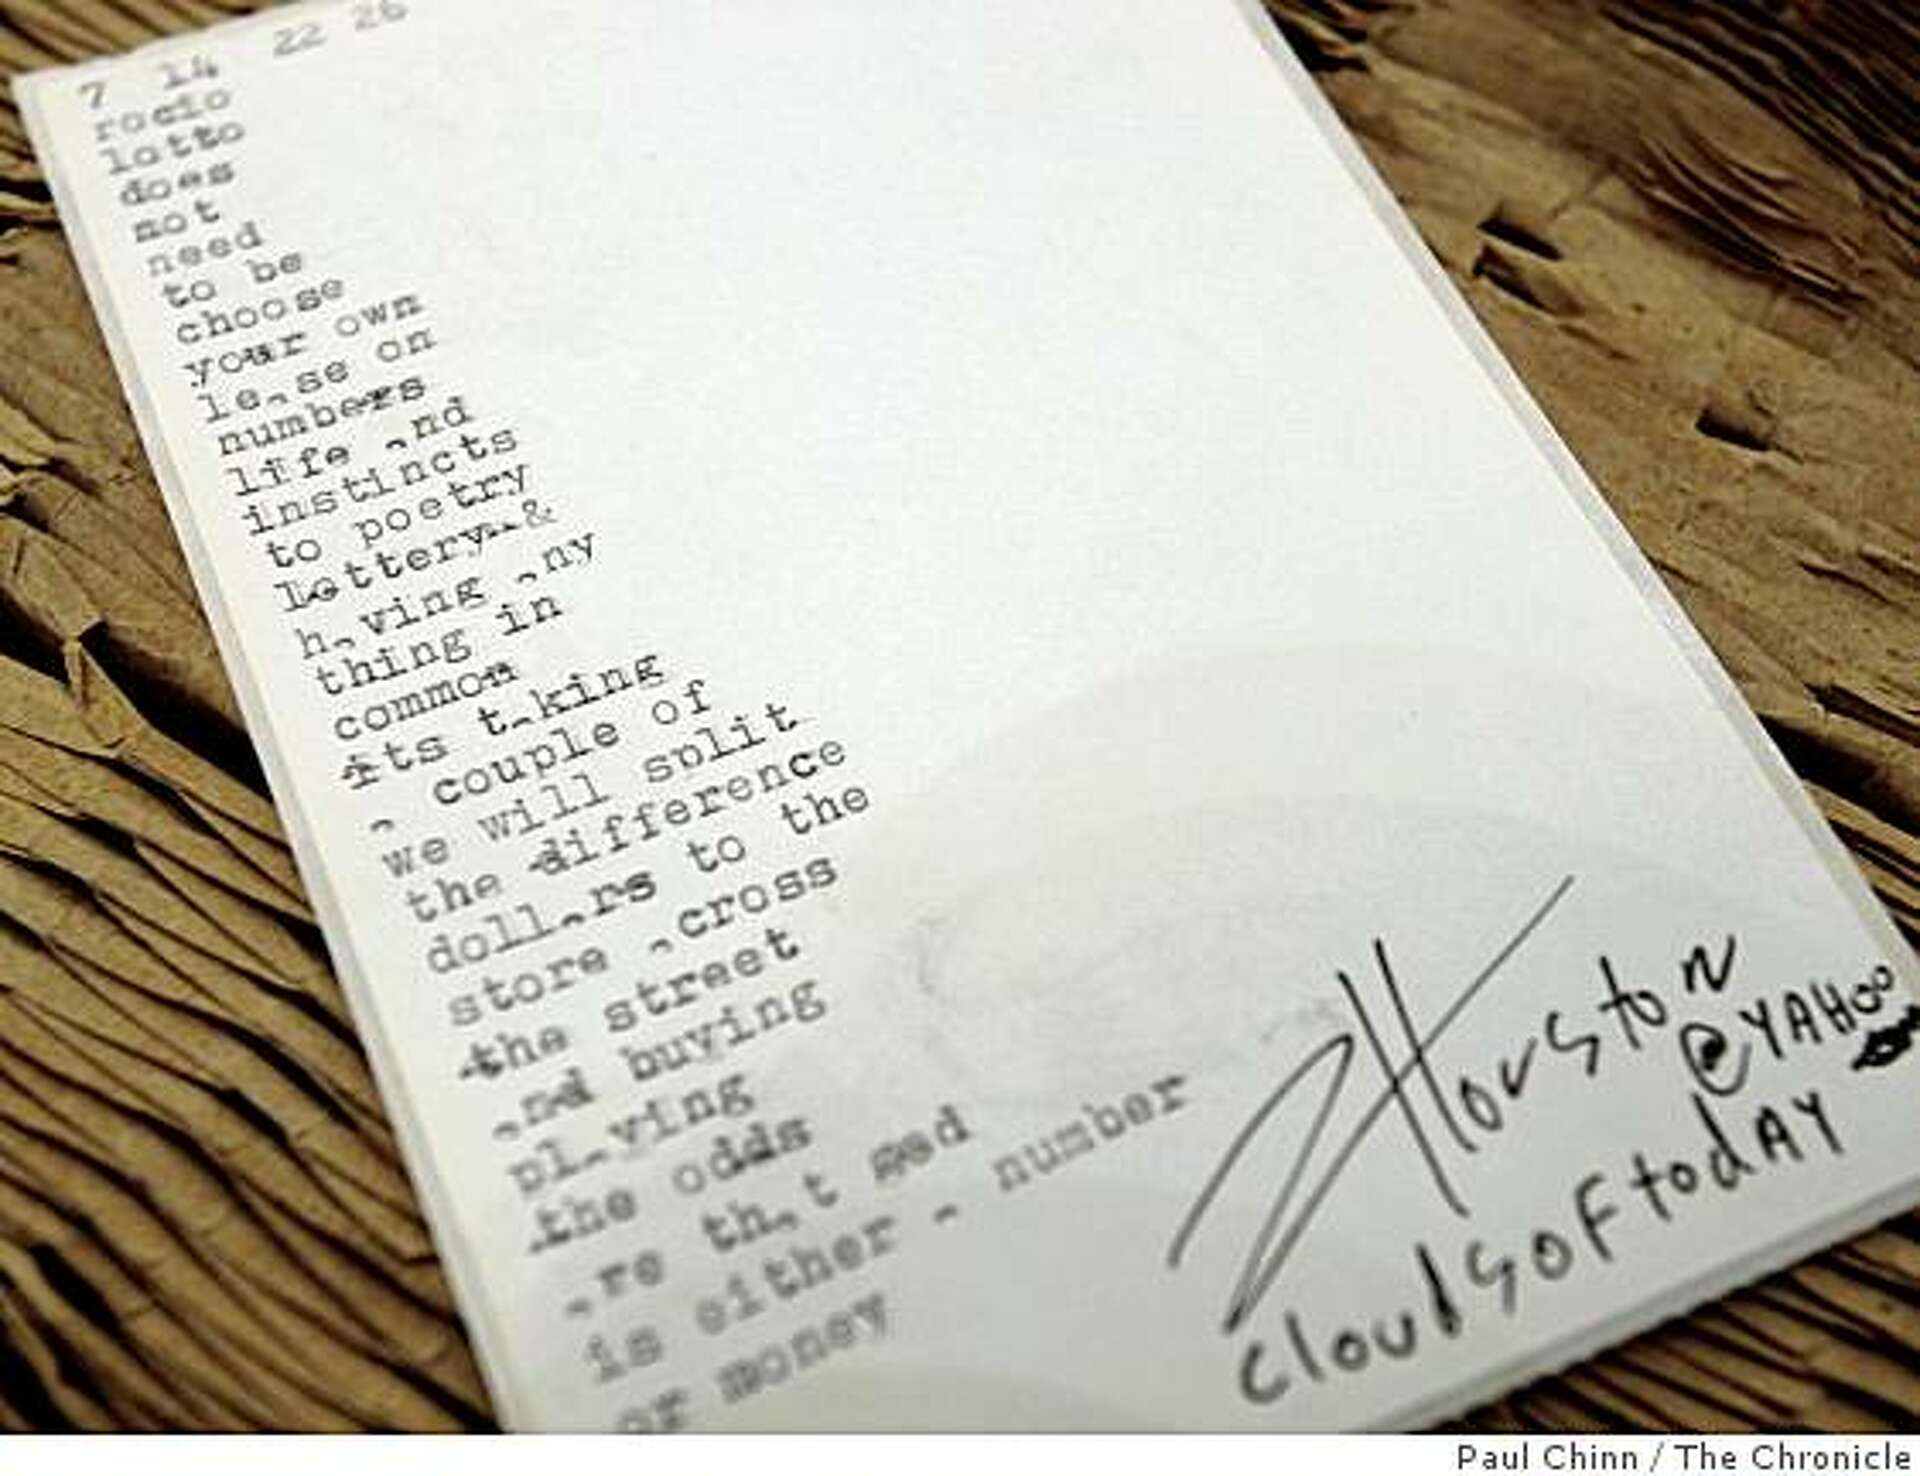 7 14 22 26
rocio
lotto
does
not
need
to be
choose
your own
lease on
numbers
life and
instincts
to poetry
lottery &
having any
thing in
common
its taking
a couple of
we will split
the difference
dollars to the
store across
the street
and buying
playing
the odds
are that
is either a number
or money
ZHouston
@YAHOO
cloudsoftodAY
Paul Chinn / The Chronicle